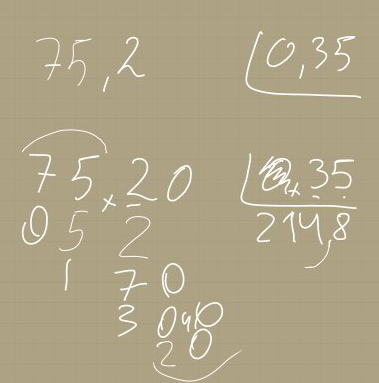 75,2 0,35
75,20 0,35
052 214,8
170
300
20